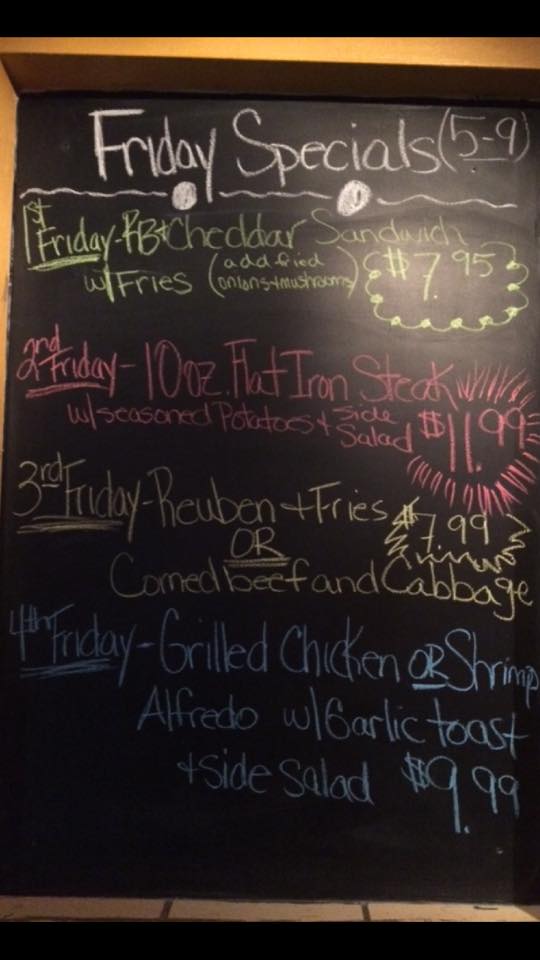 Friday Specials (5-9)
1st Friday - RB + Cheddar Sandwich
w/ Fries (add fried onions + mushrooms) $7.95
2nd Friday - 10oz. Flat Iron Steak
w/ seasoned Potatoes + side Salad $11.99
3rd Friday - Reuben + Fries $7.99
OR
Corned beef and Cabbage
4th Friday - Grilled Chicken OR Shrimp
Alfredo w/ Garlic toast
+ side salad $9.99